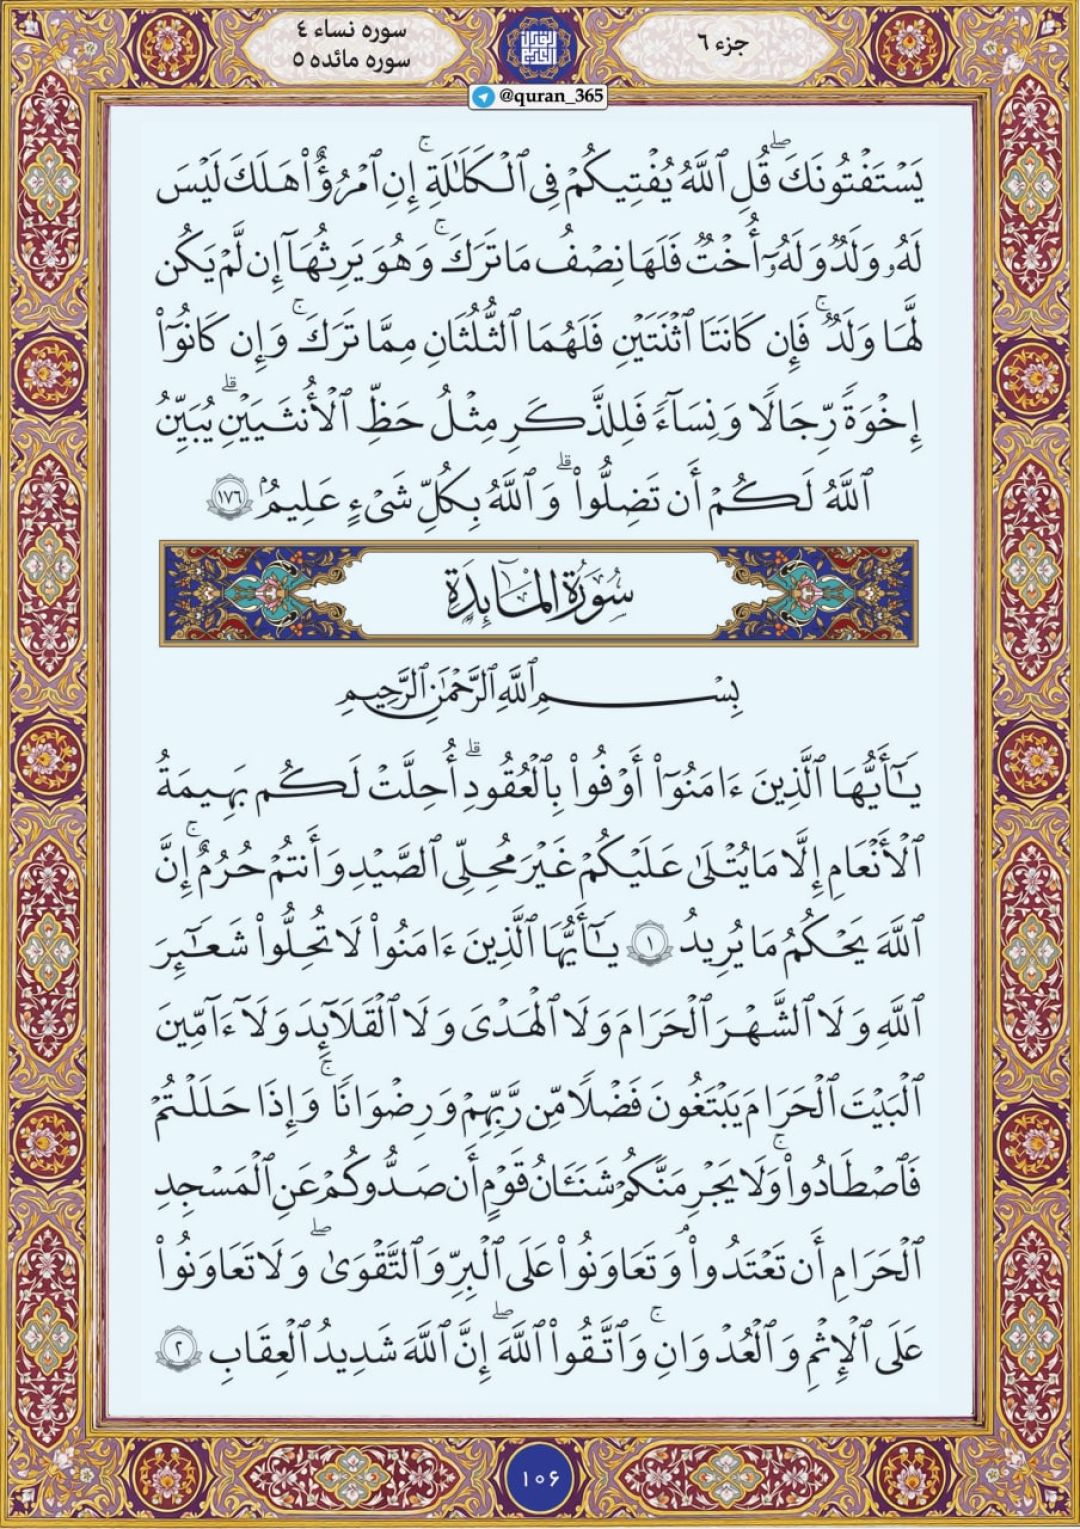 جزء ۶
سوره نساء ۴
سوره مائده ۵
@quran_365
يَسۡتَفۡتُونَكَۖ قُلِ ٱللَّهُ يُفۡتِيكُمۡ فِي ٱلۡكَلَٰلَةِۚ إِنِ ٱمۡرُؤٌاْ هَلَكَ لَيۡسَ
لَهُۥ وَلَدٞ وَلَهُۥٓ أُخۡتٞ فَلَهَا نِصۡفُ مَا تَرَكَۚ وَهُوَ يَرِثُهَآ إِن لَّمۡ يَكُن
لَّهَا وَلَدٞۚ فَإِن كَانَتَا ٱثۡنَتَيۡنِ فَلَهُمَا ٱلثُّلُثَانِ مِمَّا تَرَكَۚ وَإِن كَانُوٓاْ
إِخۡوَةٗ رِّجَالٗا وَنِسَآءٗ فَلِلذَّكَرِ مِثۡلُ حَظِّ ٱلۡأُنثَيَيۡنِۗ يُبَيِّنُ
ٱللَّهُ لَكُمۡ أَن تَضِلُّواْۗ وَٱللَّهُ بِكُلِّ شَيۡءٍ عَلِيمُۢ ١٧٦
سُورَةُ المَائِدَةِ
بِسۡمِ ٱللَّهِ ٱلرَّحۡمَٰنِ ٱلرَّحِيمِ
يَٰٓأَيُّهَا ٱلَّذِينَ ءَامَنُوٓاْ أَوۡفُواْ بِٱلۡعُقُودِۚ أُحِلَّتۡ لَكُم بَهِيمَةُ
ٱلۡأَنۡعَٰمِ إِلَّا مَا يُتۡلَىٰ عَلَيۡكُمۡ غَيۡرَ مُحِلِّي ٱلصَّيۡدِ وَأَنتُمۡ حُرُمٌۚ إِنَّ
ٱللَّهَ يَحۡكُمُ مَا يُرِيدُ ١ يَٰٓأَيُّهَا ٱلَّذِينَ ءَامَنُواْ لَا تُحِلُّواْ شَعَٰٓئِرَ
ٱللَّهِ وَلَا ٱلشَّهۡرَ ٱلۡحَرَامَ وَلَا ٱلۡهَدۡيَ وَلَا ٱلۡقَلَٰٓئِدَ وَلَآ ءَآمِّينَ
ٱلۡبَيۡتَ ٱلۡحَرَامَ يَبۡتَغُونَ فَضۡلٗا مِّن رَّبِّهِمۡ وَرِضۡوَٰنٗاۚ وَإِذَا حَلَلۡتُمۡ
فَٱصۡطَادُواْۚ وَلَا يَجۡرِمَنَّكُمۡ شَنَـَٔانُ قَوۡمٍ أَن صَدُّوكُمۡ عَنِ ٱلۡمَسۡجِدِ
ٱلۡحَرَامِ أَن تَعۡتَدُواْۘ وَتَعَاوَنُواْ عَلَى ٱلۡبِرِّ وَٱلتَّقۡوَىٰۖ وَلَا تَعَاوَنُواْ
عَلَى ٱلۡإِثۡمِ وَٱلۡعُدۡوَٰنِۚ وَٱتَّقُواْ ٱللَّهَۖ إِنَّ ٱللَّهَ شَدِيدُ ٱلۡعِقَابِ ٢
۱۰۶